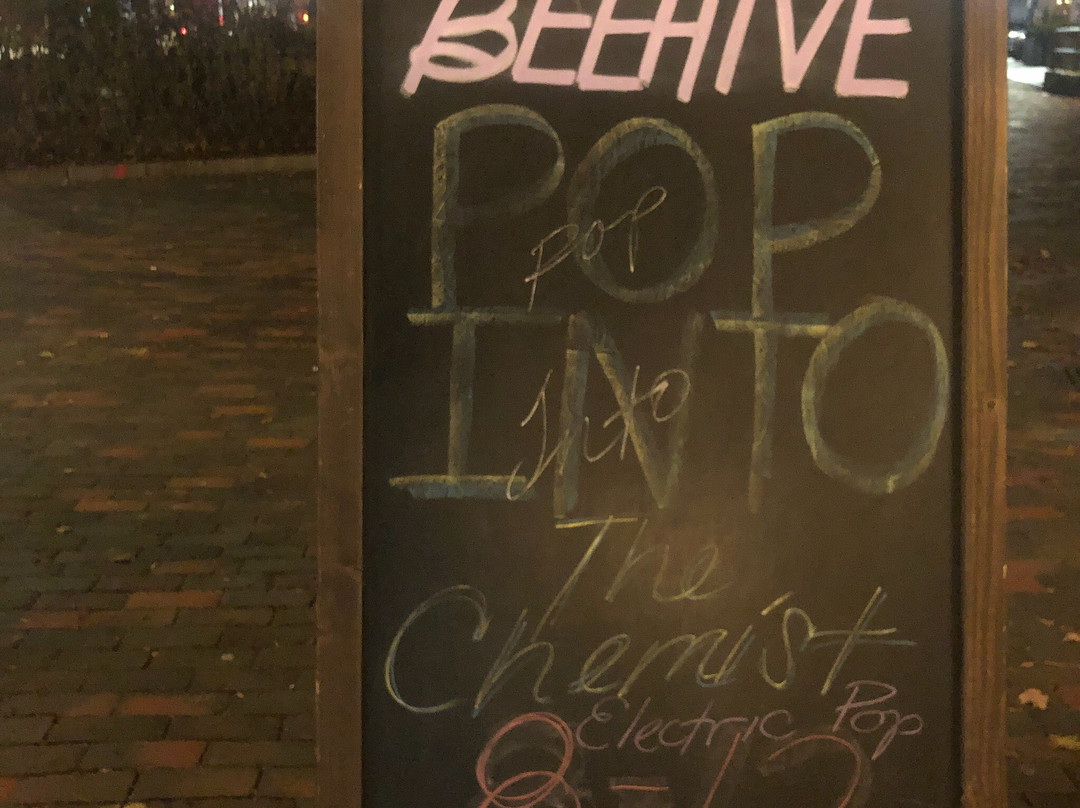 BEEHIVE
POP
pop
INTO
Into
The
Chemist
Electric Pop
8-12